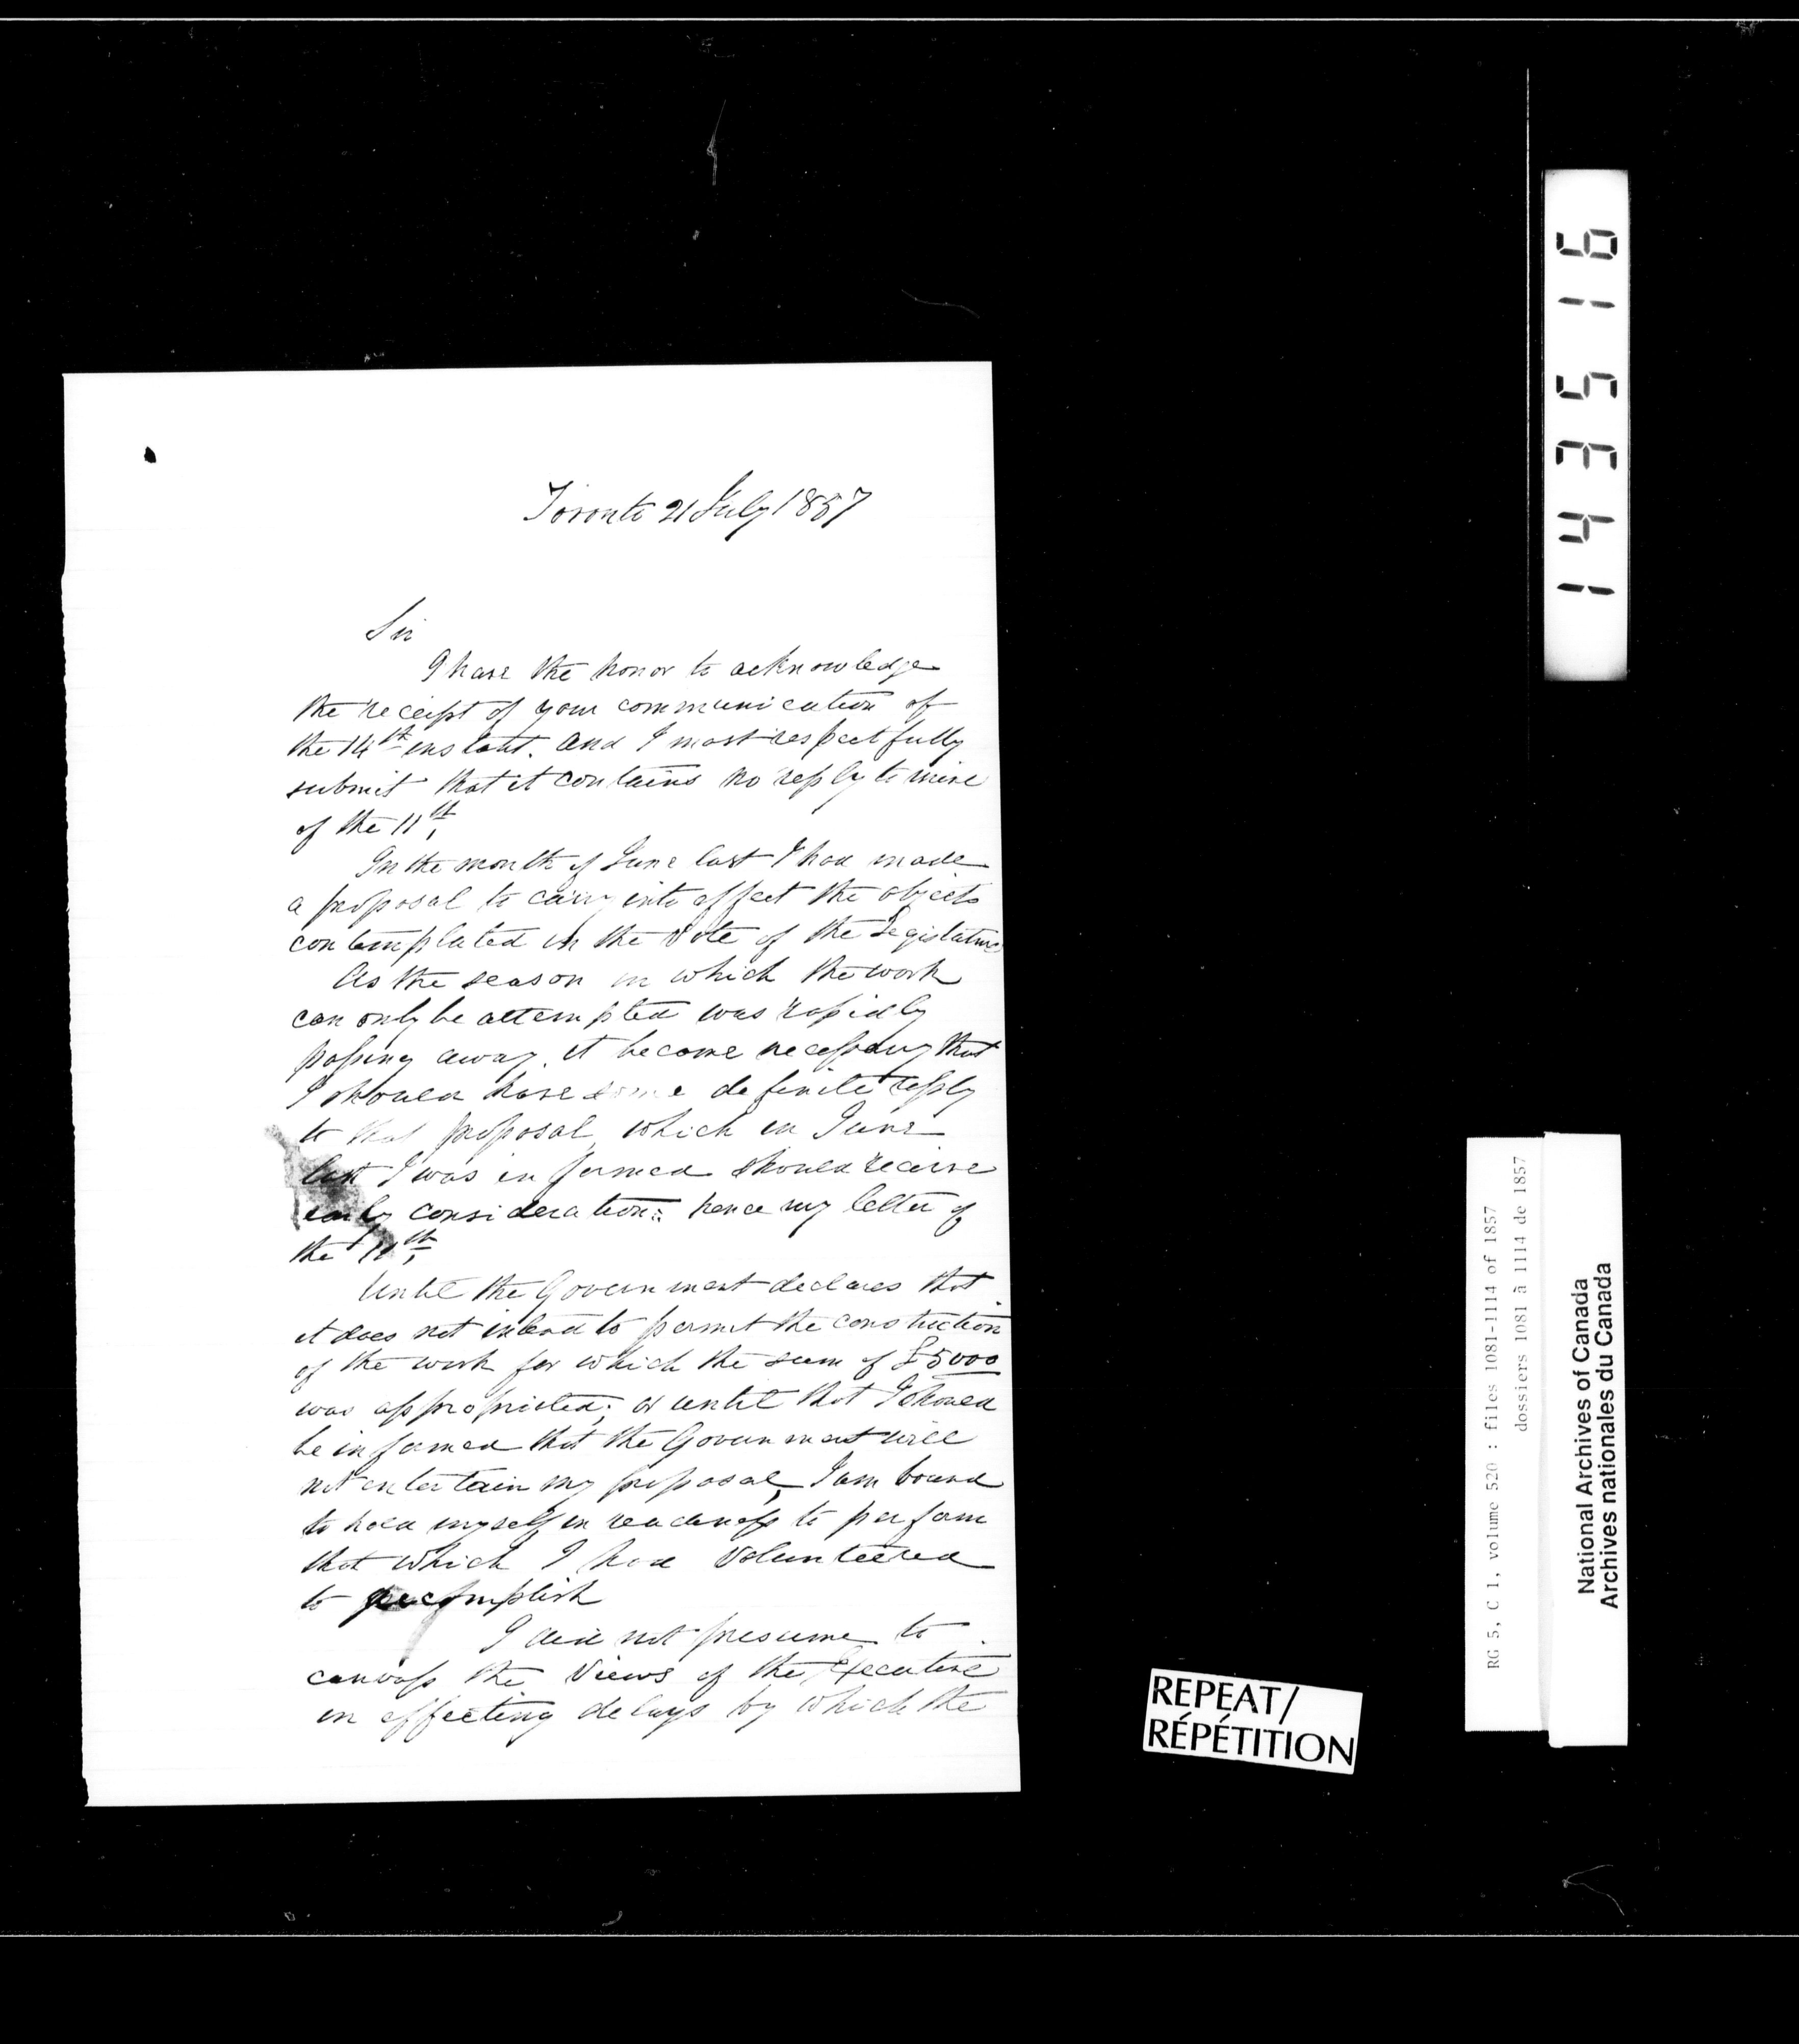 Toronto 21 July 1857
Sir
I have the honor to acknowledge
the receipt of your communication of
the 14th instant. and I most respectfully
submit that it contains no reply to mine
of the 11th.
In the month of June last I had made
a proposal to carry into effect the objects
contemplated in the Vote of the Legislature
As the season in which the work
can only be attempted was rapidly
passing away, it became necessary that
I should have some definite reply
to that proposal, which in June
last I was informed should receive
early consideration: hence my letter of
the 11th.
Until the Government declares that
it does not intend to permit the construction
of the work for which the sum of £5000
was appropriated; or until that I should
be informed that the Government will
not entertain my proposal, I am bound
to hold myself in readiness to perform
that which I had Volunteered
to accomplish
I did not presume to
canvass the Views of the Executive
in effecting delays by which the
143516
RG 5, C 1, volume 520 : files 1081-1114 of 1857
dossiers 1081 à 1114 de 1857
National Archives of Canada
Archives nationales du Canada
REPEAT/
RÉPÉTITION